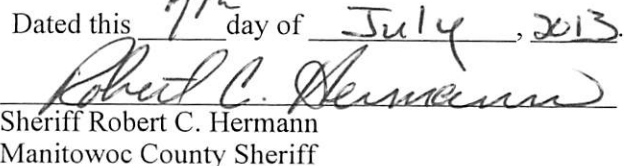 Dated this 9th day of July, 2013.
Robert C. Hermann
Sheriff Robert C. Hermann
Manitowoc County Sheriff